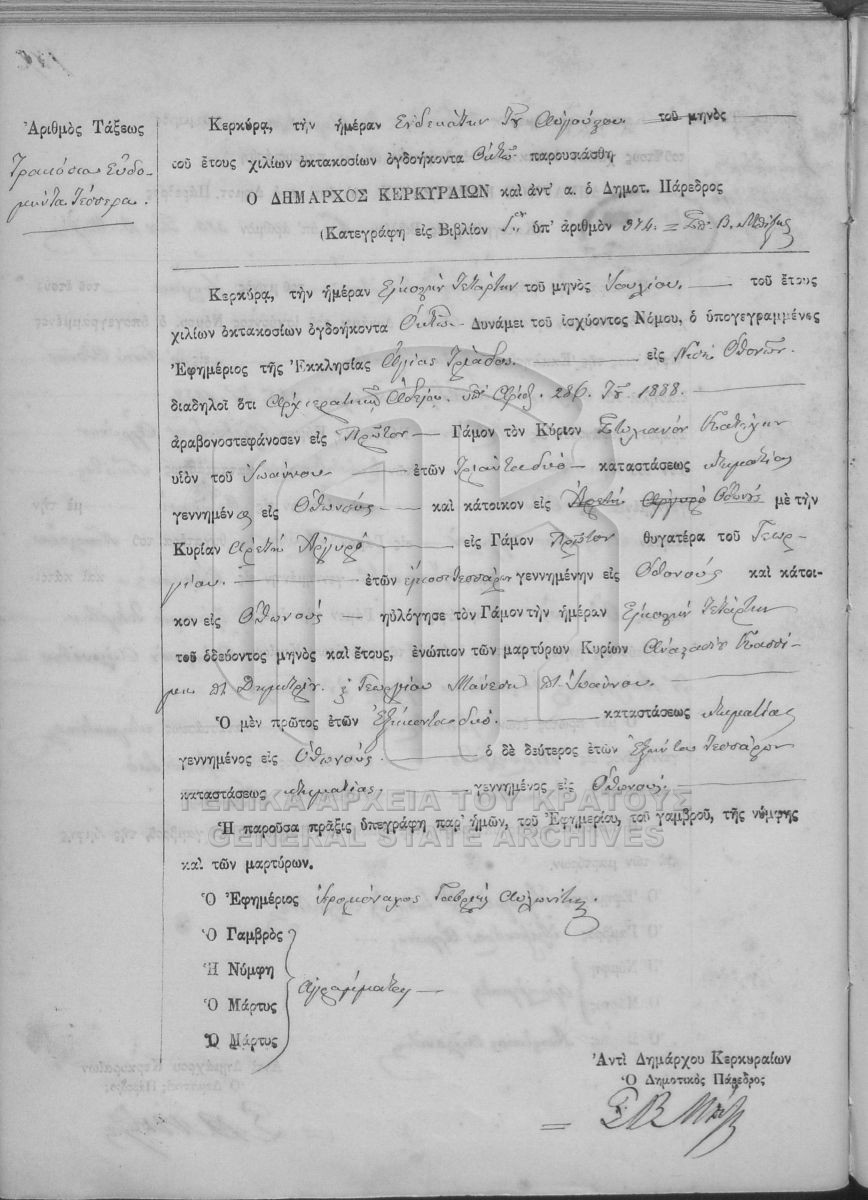 Ἀριθμὸς Τάξεως
Τριακόσια Εὐδο-
μῆντα Τέσσερα.
Κερκύρα, τὴν ἡμέραν Ἑνδεκάτην τοῦ Αὐγούστου τοῦ μηνὸς
τοῦ ἔτους χιλίων ὀκτακοσίων ὀγδοήκοντα Ὀκτὼ παρουσιάσθη
Ὁ ΔΗΜΑΡΧΟΣ ΚΕΡΚΥΡΑΙΩΝ καὶ ἀντ' α. ὁ Δημοτ. Πάρεδρος
(Κατεγράφη εἰς Βιβλίον Γον ὑπ' ἀριθμὸν 374. =
Κερκύρα, τὴν ἡμέραν Εἰκοστὴν Τετάρτην τοῦ μηνὸς Ἰουλίου. τοῦ ἔτους
χιλίων ὀκτακοσίων ὀγδοήκοντα Ὀκτὼ Δυνάμει τοῦ ἰσχύοντος Νόμου, ὁ ὑπογεγραμμένος
Ἐφημέριος τῆς Ἐκκλησίας Ἁγίας Τριάδος. εἰς Νῆσ. Ὀθονῶν.
διαδηλοῖ ὅτι Ἀρχιερατικῇ Ἀδείᾳ. ὑπ' Ἀριθ. 286. τοῦ 1888.
ἀραβονοστεφάνοσεν εἰς Πρῶτον Γάμον τὸν Κύριον Στυλιανὸν Κατέχην
υἱὸν τοῦ Ἰωάννου ἐτῶν Τριάντα δυὸ καταστάσεως κτηματίας
γεννημένος εἰς Ὀθωνούς καὶ κάτοικον εἰς Ἀρετὴ Ἀργυρὸ Ὀθωνούς μὲ τὴν
Κυρίαν Ἀρετὴ Ἀργυρὸ εἰς Γάμον Πρῶτον θυγατέρα τοῦ Γεωρ-
γίου. ἐτῶν εἰκοσιτεσσάρων γεννημένην εἰς Ὀθονούς καὶ κάτοι-
κον εἰς Ὀθωνούς ηὐλόγησε τὸν Γάμον τὴν ἡμέραν Εἰκοστὴν Τετάρτην
τοῦ ὁδεύοντος μηνὸς καὶ ἔτους, ἐνώπιον τῶν μαρτύρων Κυρίων Ἀναστασίου
Δημητρίου. & Γεωργίου Μάνεση Ἰωάννου.
Ὁ μὲν πρῶτος ἐτῶν Ἑξήκοντα δυό. καταστάσεως κτηματίας
γεννημένος εἰς Ὀθωνούς. ὁ δὲ δεύτερος ἐτῶν Ἑξήντα Τεσσάρων
καταστάσεως κτηματίας. γεννημένος εἰς Ὀθωνούς.
ΓΕΝΙΚΑ ΑΡΧΕΙΑ ΤΟΥ ΚΡΑΤΟΥΣ
Ἡ παροῦσα πρᾶξις ὑπεγράφη παρ' ἡμῶν, τοῦ Ἐφημερίου, τοῦ γαμβροῦ, τῆς νύμφης
GENERAL STATE ARCHIVES
καὶ τῶν μαρτύρων.
Ὁ Ἐφημέριος Ἱερομόναχος Γαβριὴλ Αὐλωνίτης.
Ὁ Γαμβρὸς
Ἡ Νύμφη
Ὁ Μάρτυς
Ὁ Μάρτυς
Ἀγράμματοι
Ἀντὶ Δημάρχου Κερκυραίων
Ὁ Δημοτικὸς Πάρεδρος